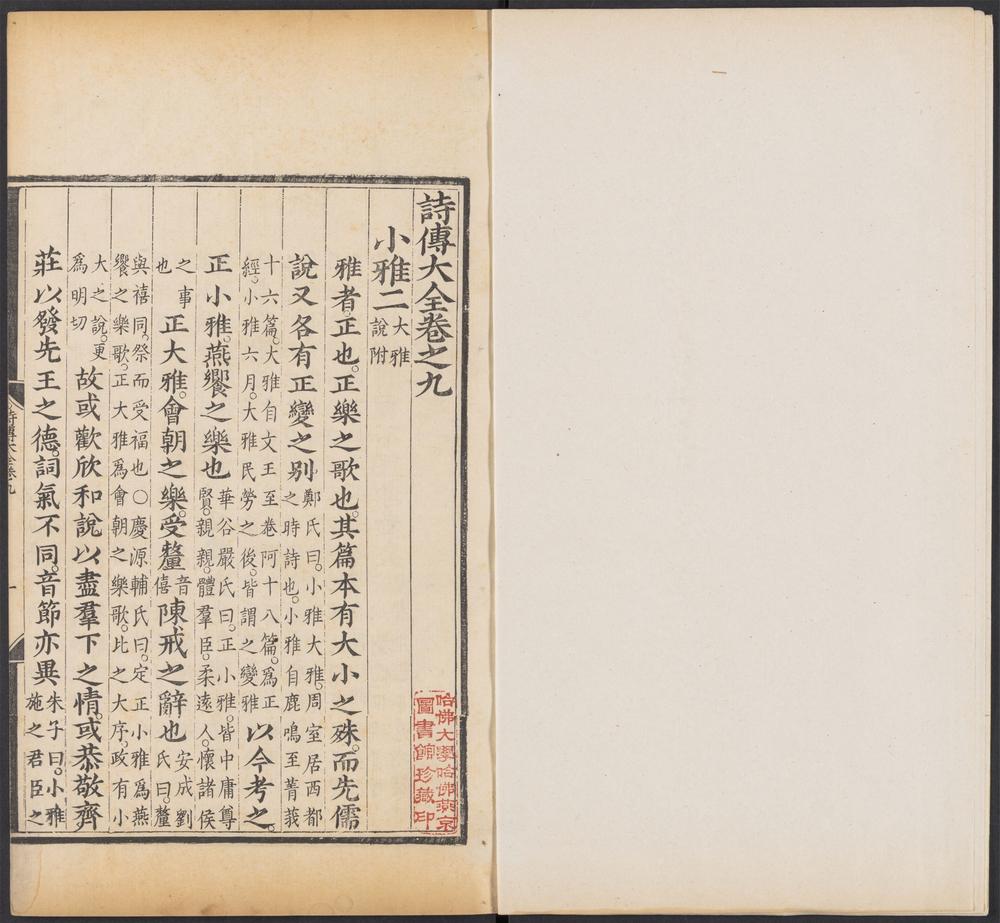 詩傳大全卷之九
哈佛大學哈佛燕京
圖書館珍藏印
小雅二大雅說附
雅者。正也。正樂之歌也。其篇本有大小之殊。而先儒
說又各有正變之別鄭氏曰。小雅大雅。周室居西都之時詩也。小雅自鹿鳴至菁莪
十六篇。大雅自文王至卷阿十八篇。為正經。小雅六月。大雅民勞之後。皆謂之變雅以今考之。
正小雅。燕饗之樂也華谷嚴氏曰。正小雅。皆中庸尊賢。親親。體羣臣。柔遠人。懷諸侯
之事也正大雅。會朝之樂。受釐音僖陳戒之辭也安成劉氏曰。釐
與禧同。祭而受福也○慶源輔氏曰。定正小雅爲燕饗之樂歌。正大雅爲會朝之樂歌。比之大序。政有小
大之說。更爲明切故或歡欣和說以盡羣下之情。或恭敬齊
莊以發先王之德。詞氣不同。音節亦異朱子曰。小雅施之君臣之
詩傳大全卷九
一